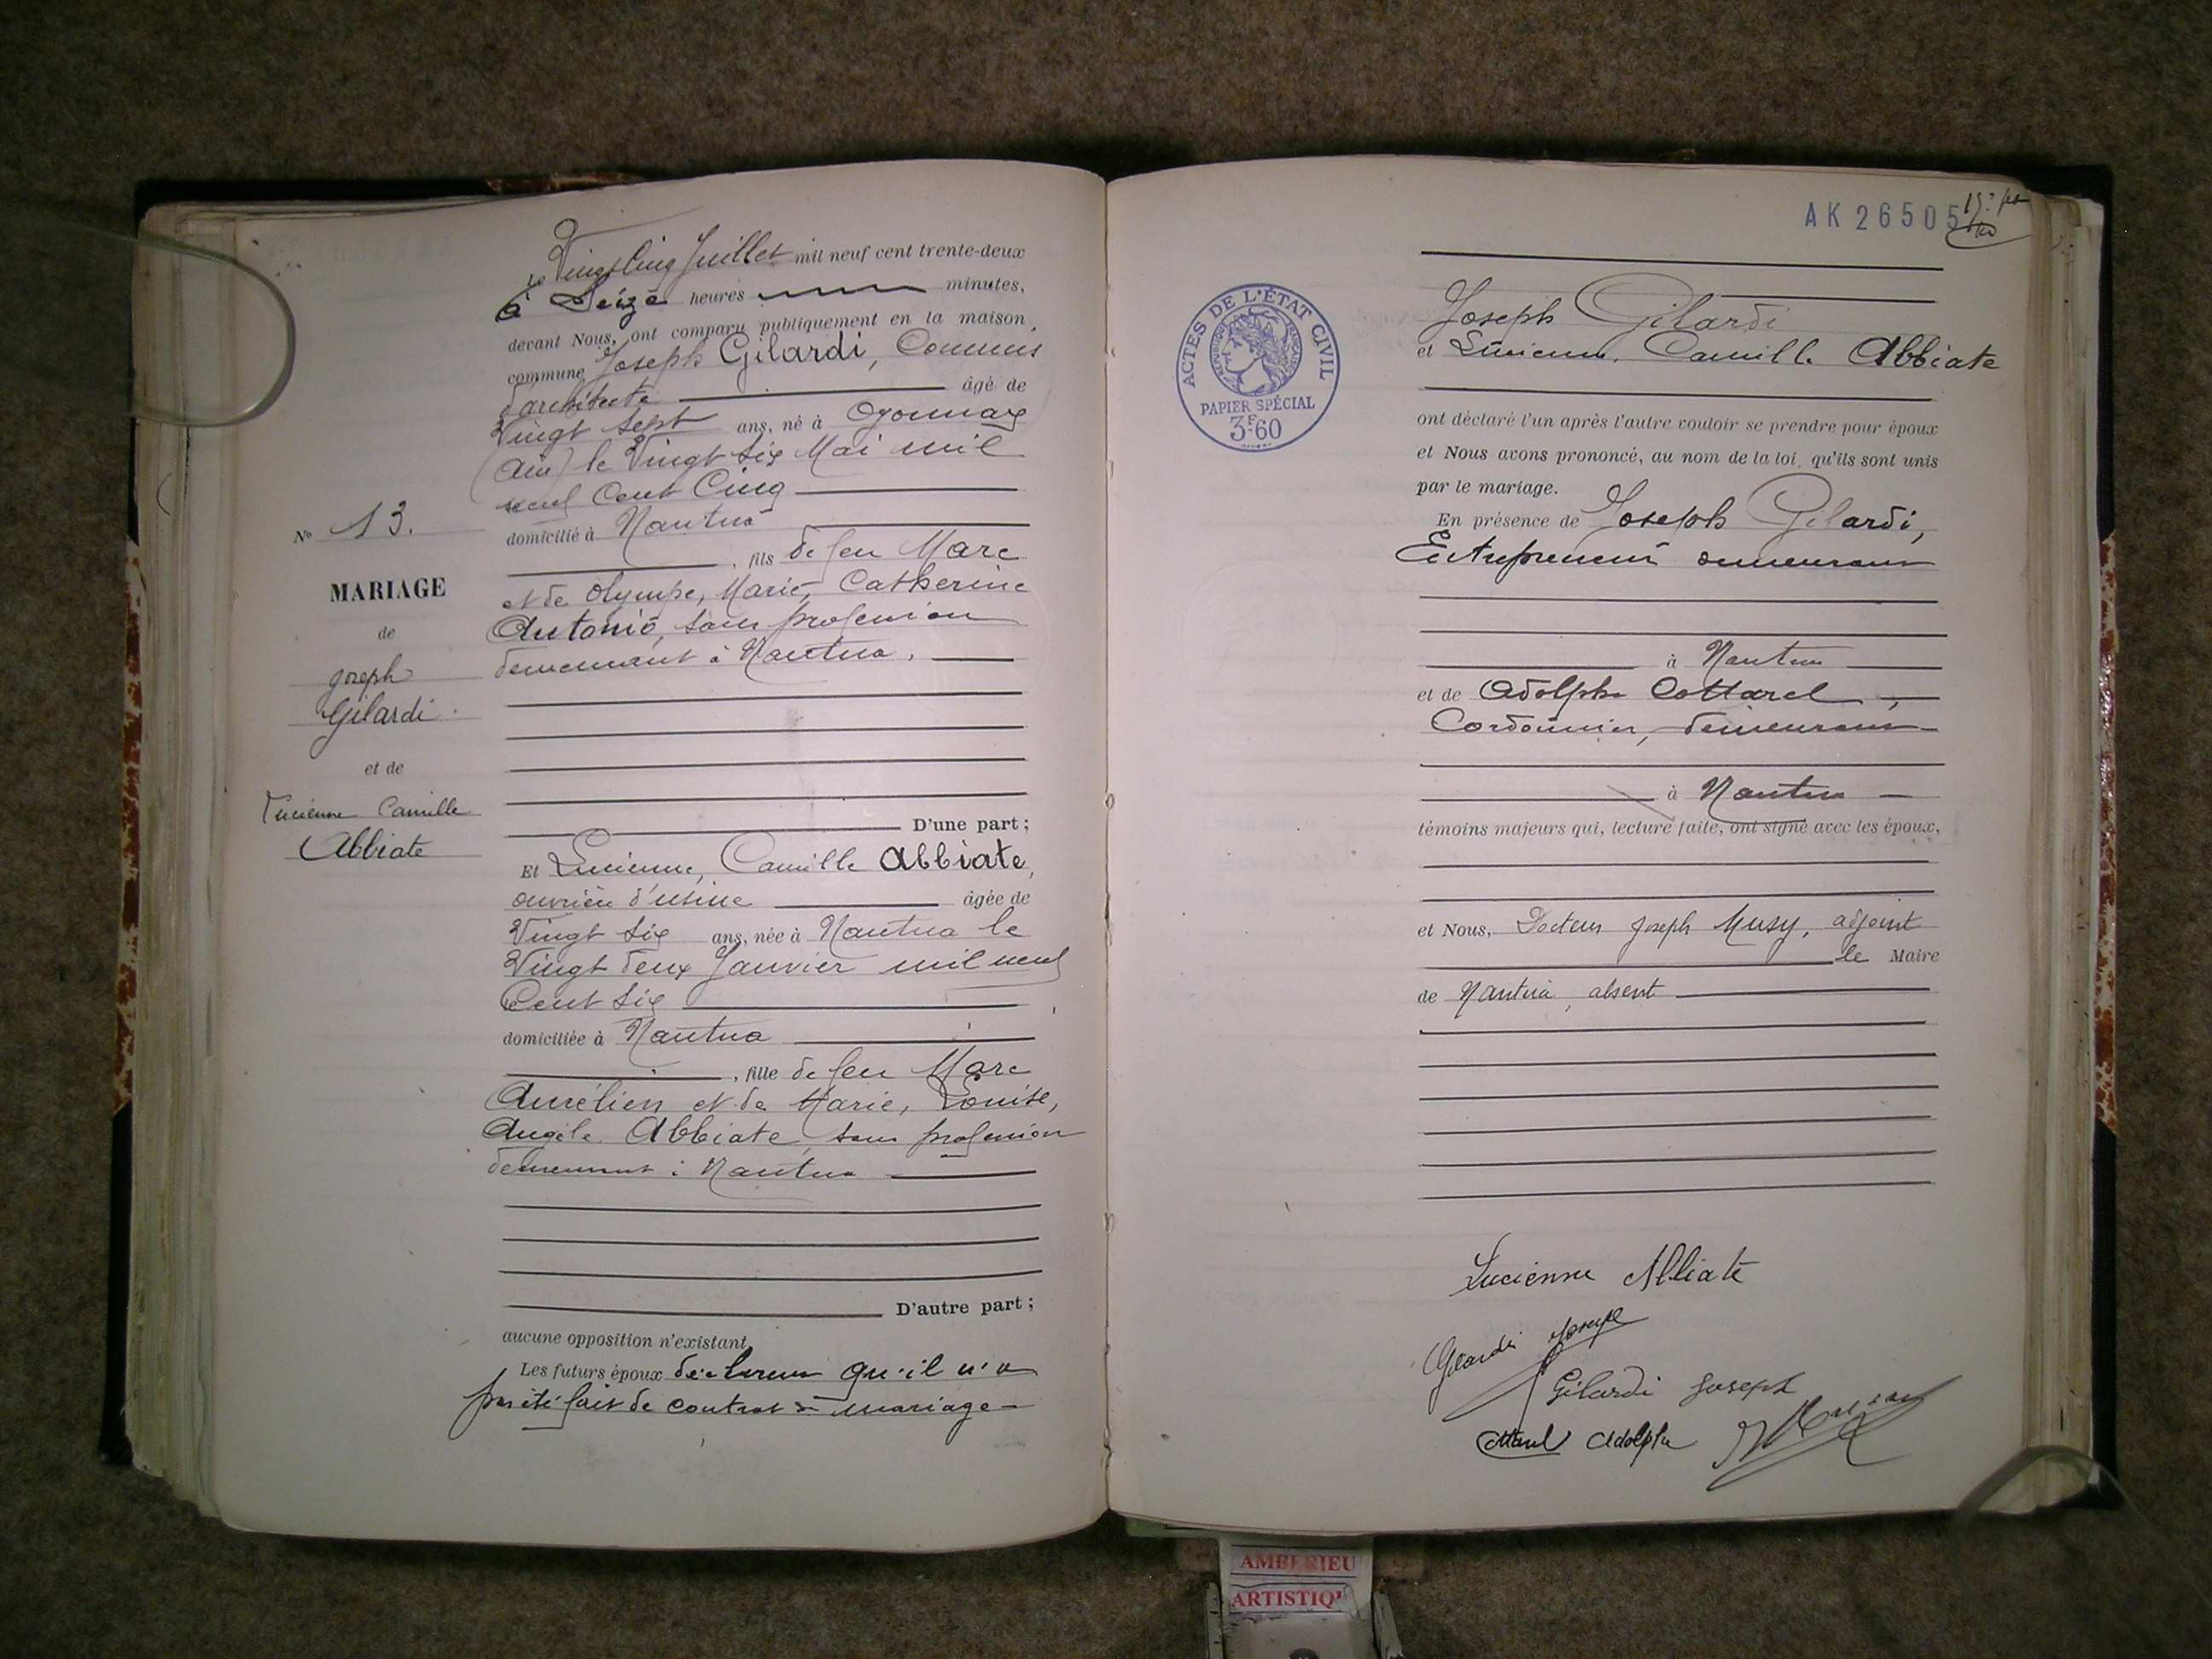 Le Vingt Cinq Juillet mil neuf cent trente-deux
à Seize heures minutes,
devant Nous, ont comparu publiquement en la maison
commune Joseph Gilardi, Commis
d'architecte âgé de
Vingt Sept ans, né à Oyonnax
(Ain) le Vingt Six Mai mil
neuf Cent Cinq
domicilié à Nantua
, fils de feu Marc
et de Olympe, Marie, Catherine
Antonio, sans profession
demeurant à Nantua.
D'une part ;
Et Lucienne, Camille Abbiate,
ouvrière d'usine âgée de
Vingt Six ans, née à Nantua le
Vingt deux Janvier mil neuf
Cent Six
domiciliée à Nantua
, fille de feu Marc
Aurélien et de Marie, Louise,
Angèle Abbiate, sans profession
demeurant à Nantua
D'autre part ;
aucune opposition n'existant
Les futurs époux déclarent qu'il n'a
pas été fait de contrat de mariage
N° 13.
MARIAGE
de
Joseph
Gilardi
et de
Lucienne Camille
Abbiate
AK 26505
ACTES DE L'ÉTAT CIVIL
RÉPUBLIQUE FRANÇAISE
PAPIER SPÉCIAL
3F60
Joseph Gilardi
et Lucienne, Camille Abbiate
ont déclaré l'un après l'autre vouloir se prendre pour époux
et Nous avons prononcé, au nom de la loi, qu'ils sont unis
par le mariage.
En présence de Joseph Gilardi,
Entrepreneur demeurant
à Nantua
et de Adolphe Cottarel,
Cordonnier, demeurant
à Nantua
témoins majeurs qui, lecture faite, ont signé avec les époux,
et Nous, Docteur Joseph Musy, adjoint
le Maire
de Nantua, absent
Lucienne Abbiate
Gilardi Joseph
Gilardi Joseph
Adolphe
AMBERIEU
ARTISTIQU